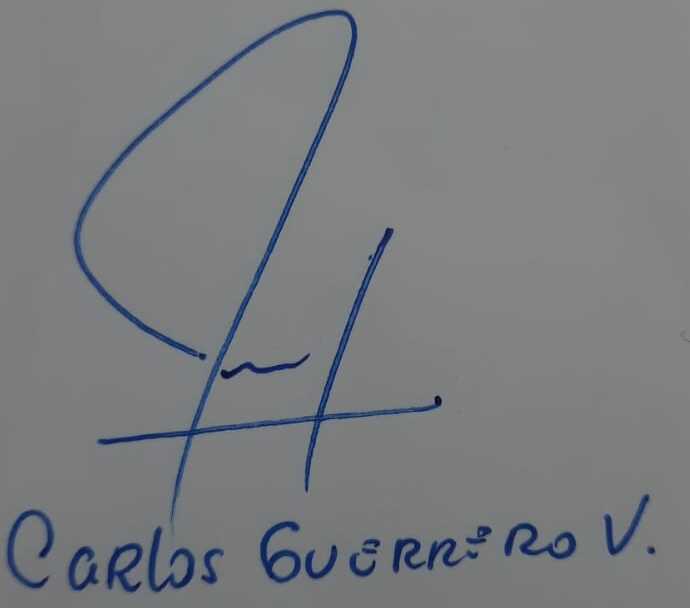 Carlos Guerrero V.